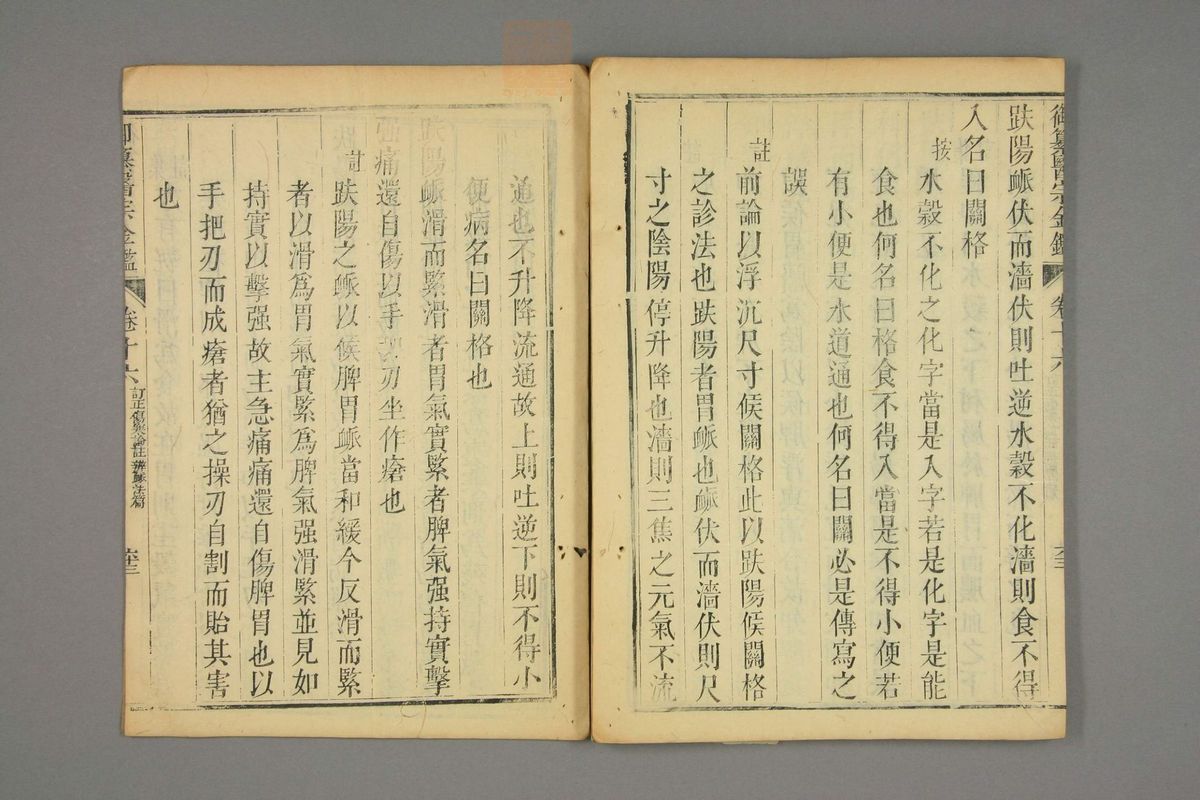 御纂醫宗金鑑 卷十六 六三
趺陽䘑伏而濇伏則吐逆水穀不化濇則食不得
入名曰關格
按 水穀不化之化字當是入字若是化字是能
食也何名曰格食不得入當是不得小便若
有小便是水道通也何名曰關必是傳寫之
誤
註 前論以浮沉尺寸候關格此以趺陽候關格
之診法也趺陽者胃䘑也䘑伏而濇伏則尺
寸之陰陽停升降也濇則三焦之元氣不流
通也不升降流通故上則吐逆下則不得小
便病名曰關格也
趺陽䘑滑而緊滑者胃氣實緊者脾氣强持實擊
强痛還自傷以手把刃坐作瘡也
註 趺陽之䘑以候脾胃䘑當和緩今反滑而緊
者以滑爲胃氣實緊爲脾氣强滑緊並見如
持實以擊强故主急痛痛還自傷脾胃也以
手把刃而成瘡者猶之操刃自割而貽其害
也
御纂醫宗金鑑 卷十六 訂正傷寒論註辨䘑法篇 六三